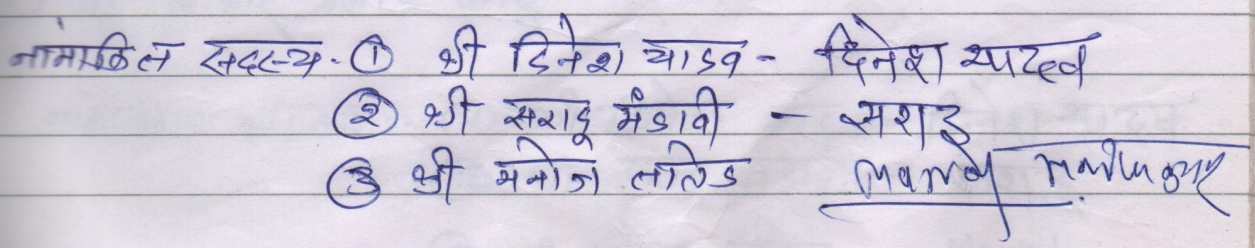 नामांकित सदस्य- ① श्री दिनेश यादव - दिनेश यादव
② श्री सरादू मंडावी - सरादू
③ श्री मनोज